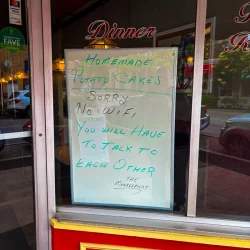 FAVE
Dinner
HOMEMADE
POTATO CAKES
SORRY
NO WIFI
YOU WILL HAVE
TO TALK TO
EACH OTHER
THE
MANAGEMENT